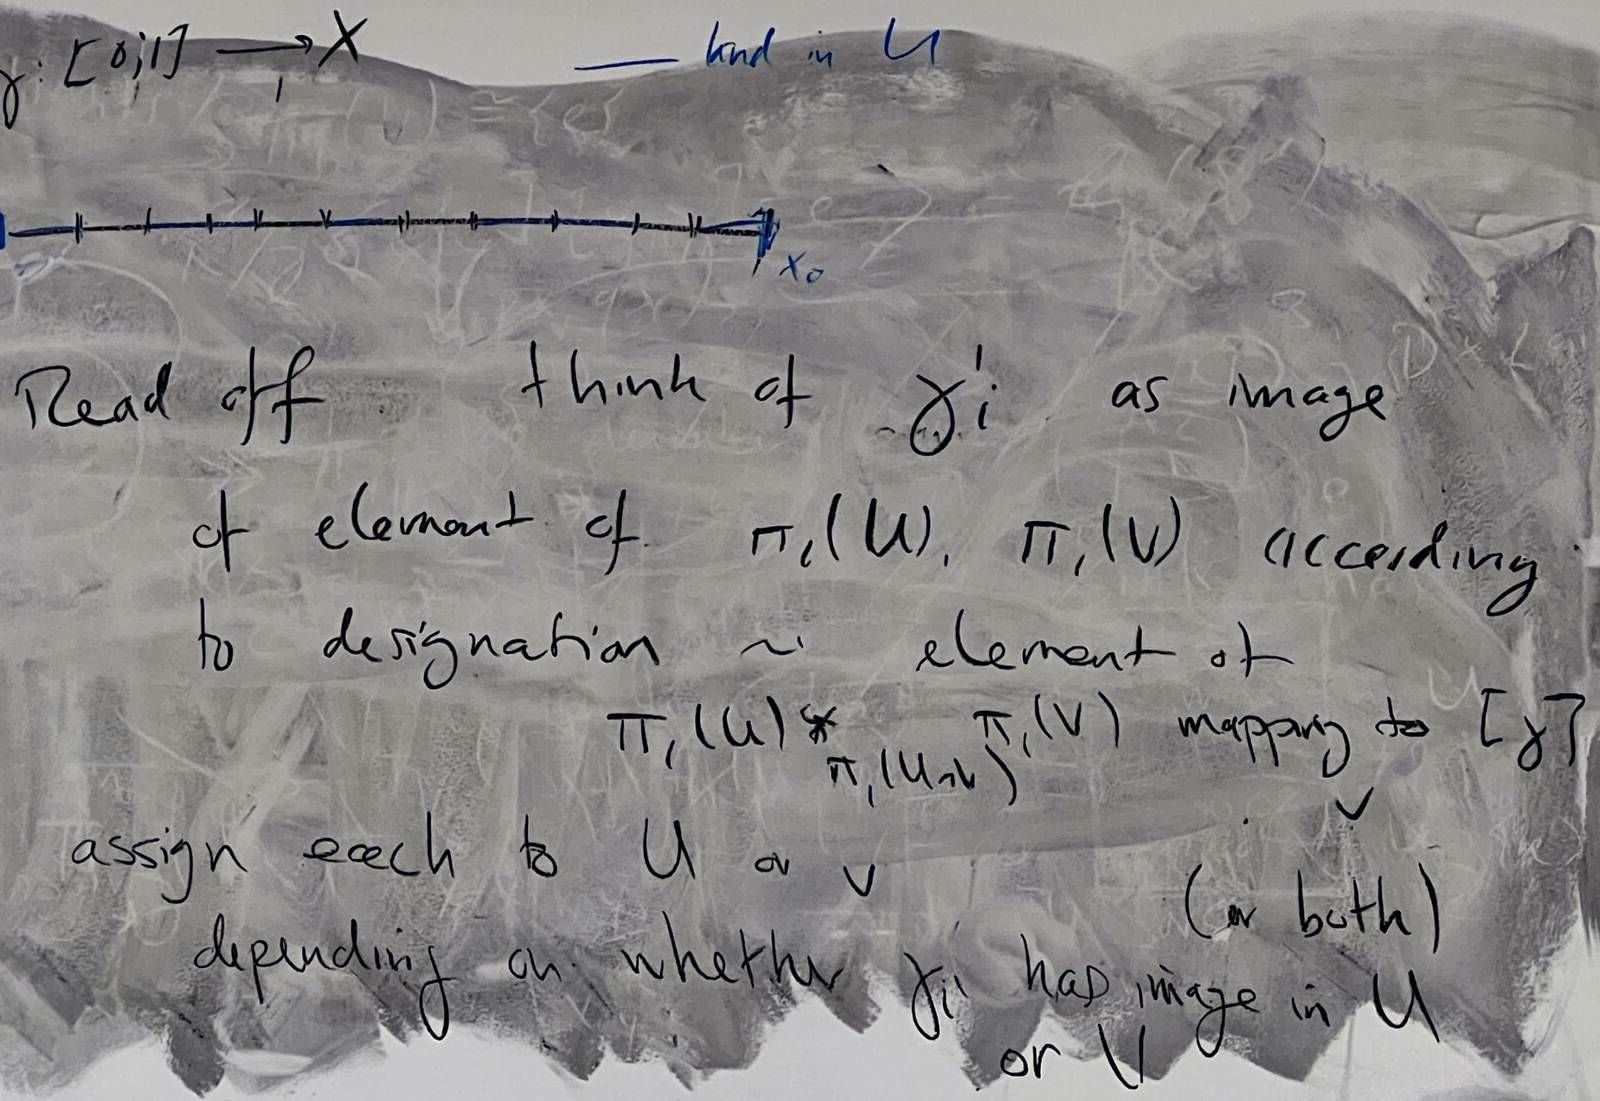 γ: [0,1] → X
land in U
x₀
Read off think of γ'i as image
of element of π₁(U), π₁(V) according
to designation ~ element of
π₁(U) * π₁(V) mapping to [γ]
π₁(U∩V)
assign each to U or V
(or both)
depending on whether γi has image in U
or V